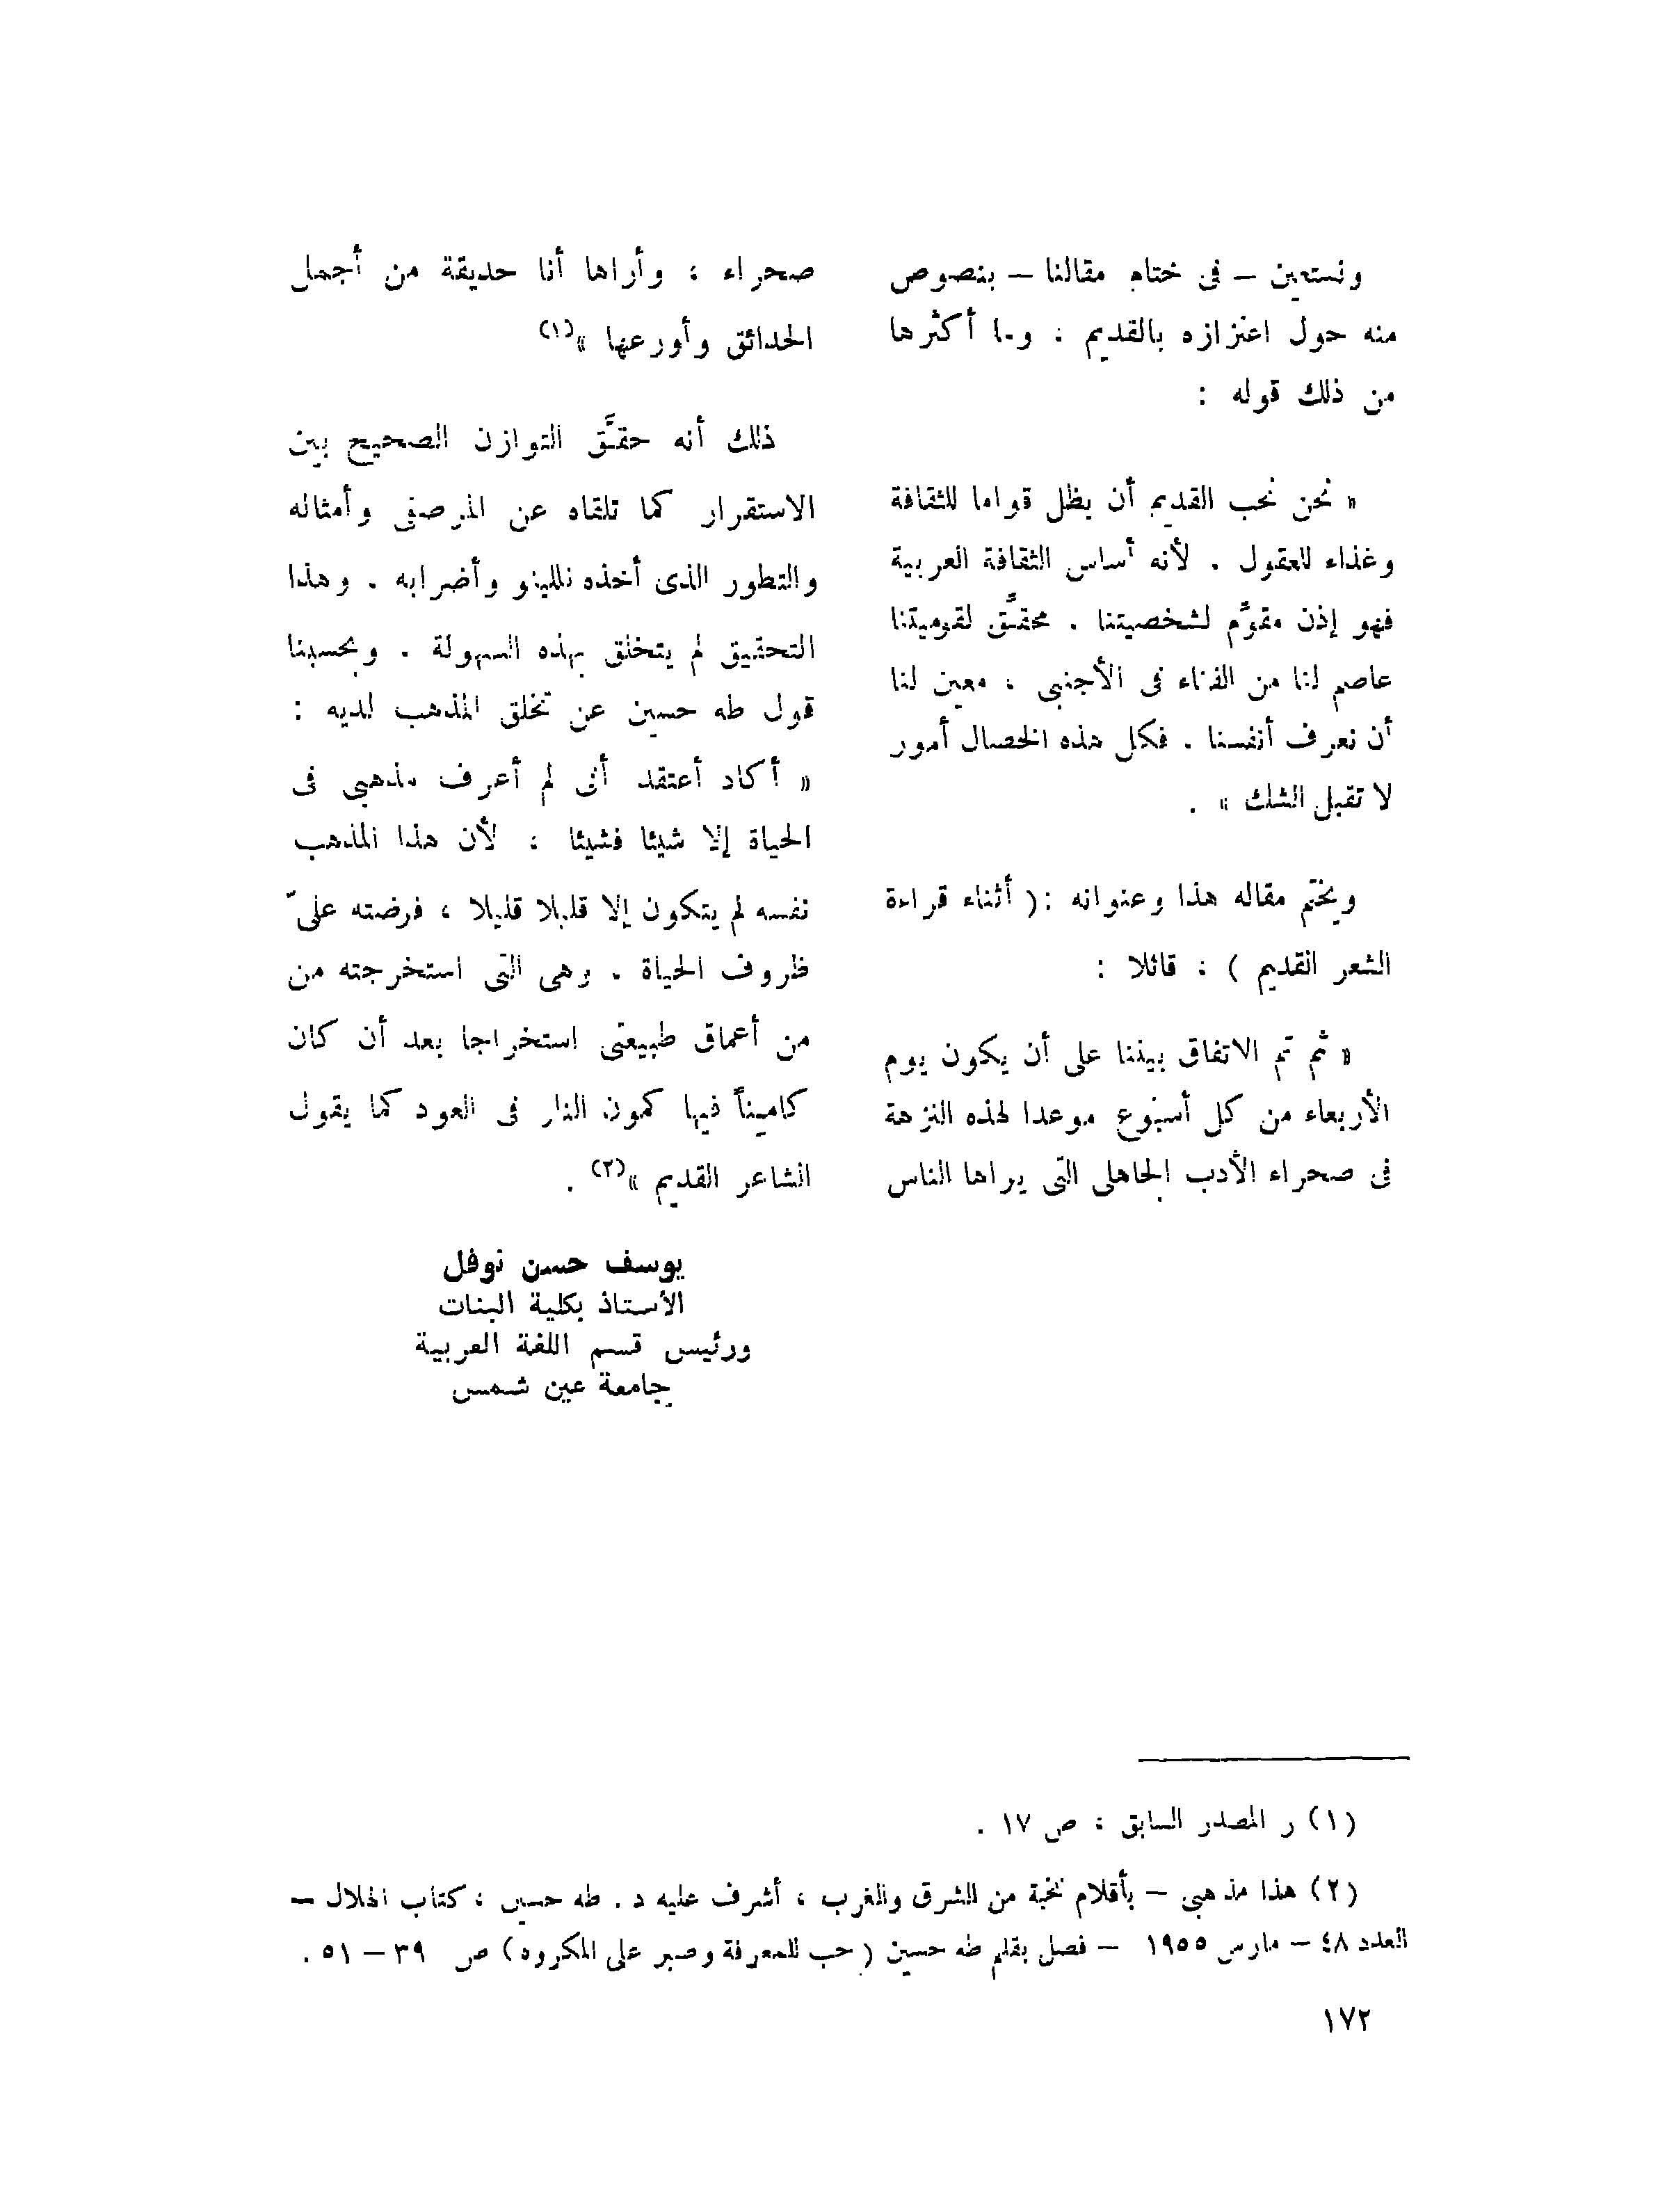 ونستعين – فى ختام مقالنا – بنصوص
منه حول اعتزازه بالقديم ، وما أكثرها
من ذلك قوله :
« نحن نحب القديم أن يظل قواما للثقافة
وغذاء للعقول . لأنه أساس الثقافة العربية
فهو إذن مقوَّم لشخصيتنا . محقـَّق لقوميتنا
عاصم لنا من الفناء فى الأجنبى ، معين لنا
أن نعرف أنفسنا . فكل هذه الخصال أمور
لا تقبل الشك » .
ويختم مقاله هذا وعنوانه : ( أثناء قراءة
الشعر القديم ) ، قائلا :
« ثم تم الاتفاق بيننا على أن يكون يوم
الأربعاء من كل أسبوع موعدا لهذه النزهة
فى صحراء الأدب الجاهلى التى يراها الناس
صحراء ، وأراها أنا حديقة من أجمل
الحدائق وأورعها »(١)
ذلك أنه حقـَّق التوازن الصحيح بين
الاستقرار كما تلقاه عن المرصفى وأمثاله
والتطور الذى أخذه نللينو وأضرابه . وهذا
التحقيق لم يتخلق بهذه السهولة . وبحسبنا
قول طه حسين عن تخلق المذهب لديه :
« أكاد أعتقد أنى لم أعرف مذهبى فى
الحياة إلا شيئا فشيئا ؛ لأن هذا المذهب
نفسه لم يتكون إلا قليلا قليلا ، فرضته علىّ
ظروف الحياة . وهى التى استخرجته من
من أعماق طبيعتى استخراجا بعد أن كان
كامناً فيها كمون النار فى العود كما يقول
الشاعر القديم »(٢) .
يوسف حسن نوفل
الأستاذ بكلية البنات
ورئيس قسم اللغة العربية
جامعة عين شمس
(١) ر المصدر السابق ، ص ١٧ .
(٢) هذا مذهبى – بأقلام نخبة من الشرق والغرب ، أشرف عليه د . طه حسين ، كتاب الهلال –
العدد ٤٨ – مارس ١٩٥٥ – فصل بقلم طه حسين ( حب للمعرفة وصبر على المكروه ) ص ٣٩ – ٥١ .
١٧٢